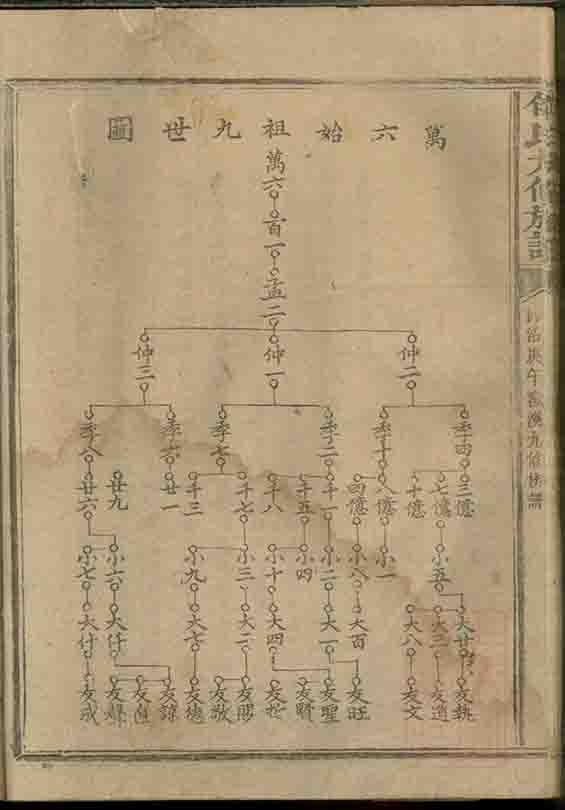 萬六始祖九世圖
萬六
百一
孟二
仲二 仲一 仲三
季四 季十 季二 季七 季六 季八
三億 七億 十億 八億 四億 千一 千五 千八 千七 千三 廿一 廿九 廿六
小五 小一 小八 小二 小四 小十 小三 小九 小六 小七
大廿 大三 大八 大百 大一 大四 大二 大七 大仟 大什
友執 友進 友文 友旺 友聖 友賢 友松 友賜 友敬 友德 友諒 友直 友成